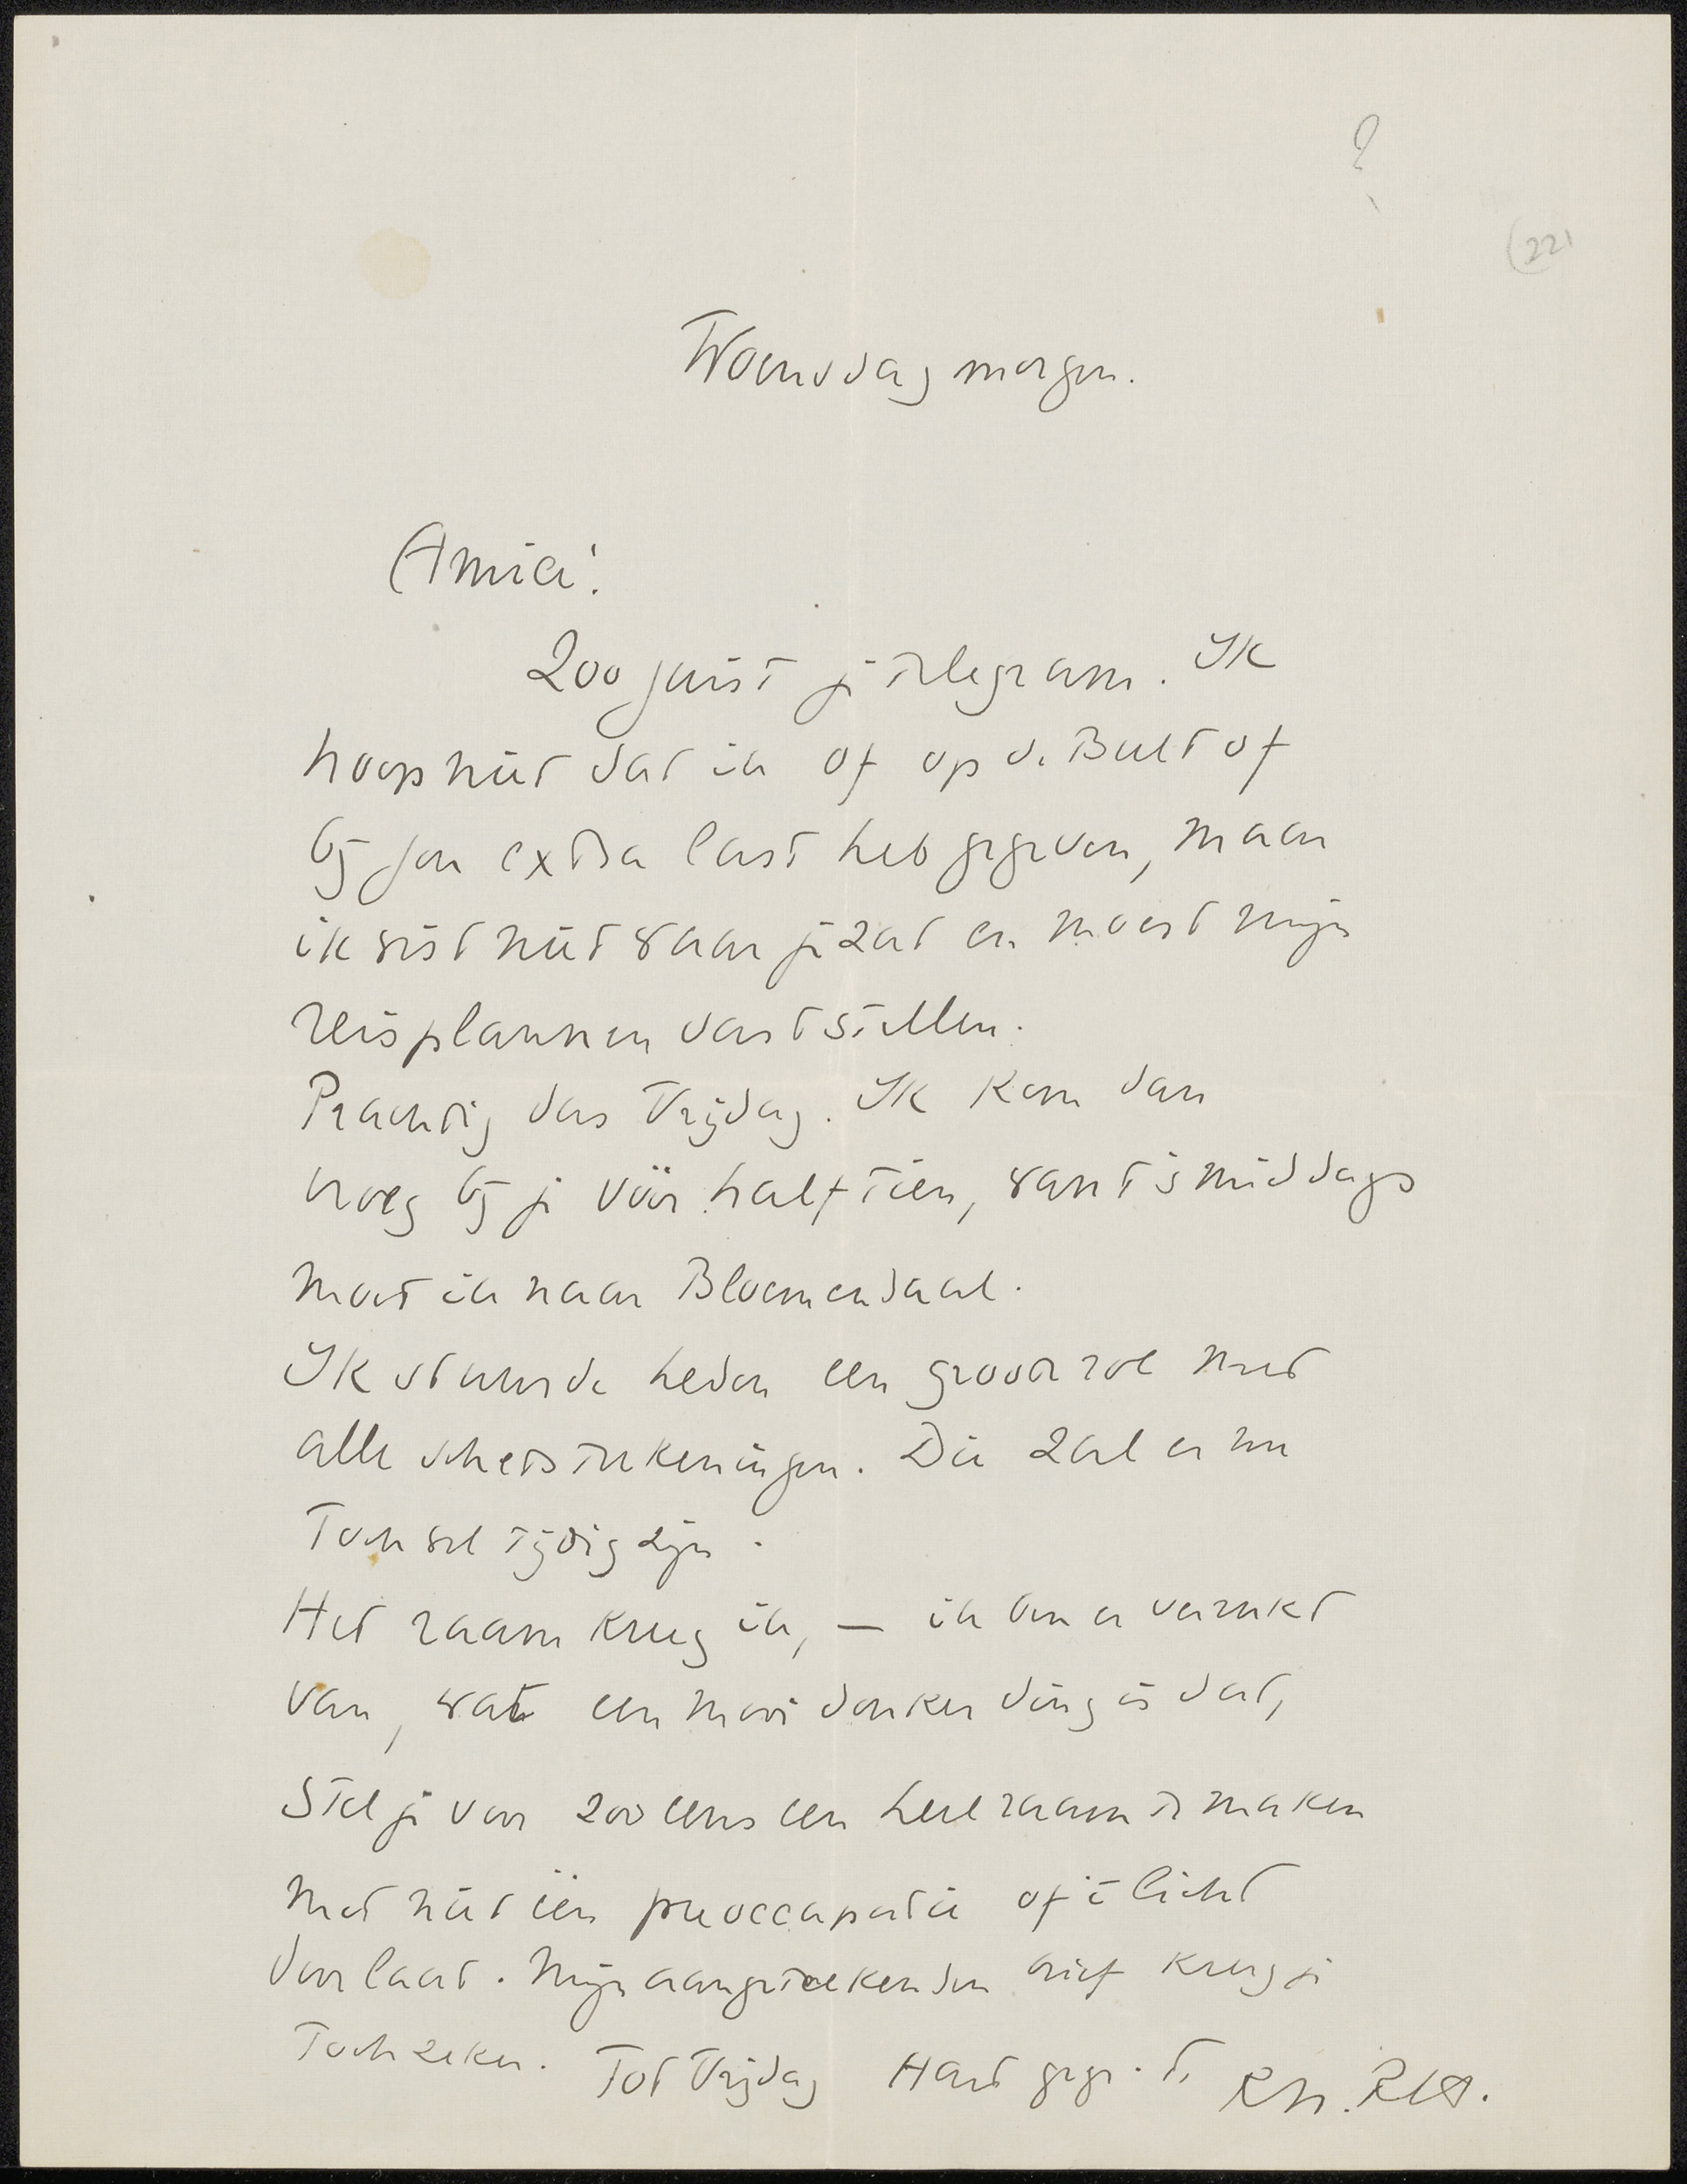 ?
(221
Woensdag morgen.
Amice!
Zoo juist je telegram. Ik
hoop niet dat ik of op de Bult of
bij jou extra last heb gegeven, maar
ik wist niet waar je zat en moest mijn
reisplannen vaststellen.
Prachtig dus Vrijdag. Ik kom dan
vroeg bij je vóór half tien, want 's middags
moet ik naar Bloemendaal.
Ik stuurde heden een groote rol met
alle schetsteekeningen. Die zal er nu
toch wel tijdig zijn.
Het raam kreeg ik, — ik ben er verrukt
van, wat een mooi donker ding is dat,
Stel je voor zoo eens een heel raam te maken
met niet één preoccupatie of 't licht
doorlaat. Mijn aangeteekenden brief kreeg je
toch zeker. Tot Vrijdag Hart gegr. t.